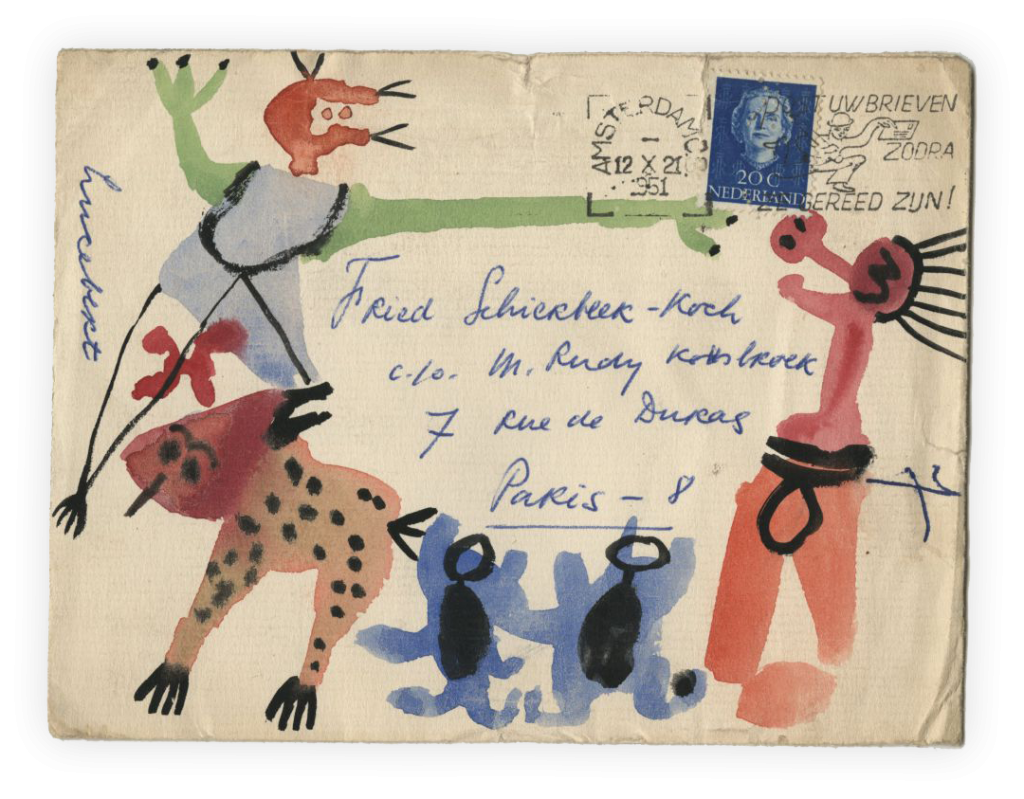 AMSTERDAM C.S
12 X 21
1951
20 C
NEDERLAND
UW BRIEVEN
ZODRA
GEREED ZIJN!
lucebert
Fried Schierbeek-Koch
c.o. M. Rudy Kousbroek
7 rue de Dukas
Paris - 8